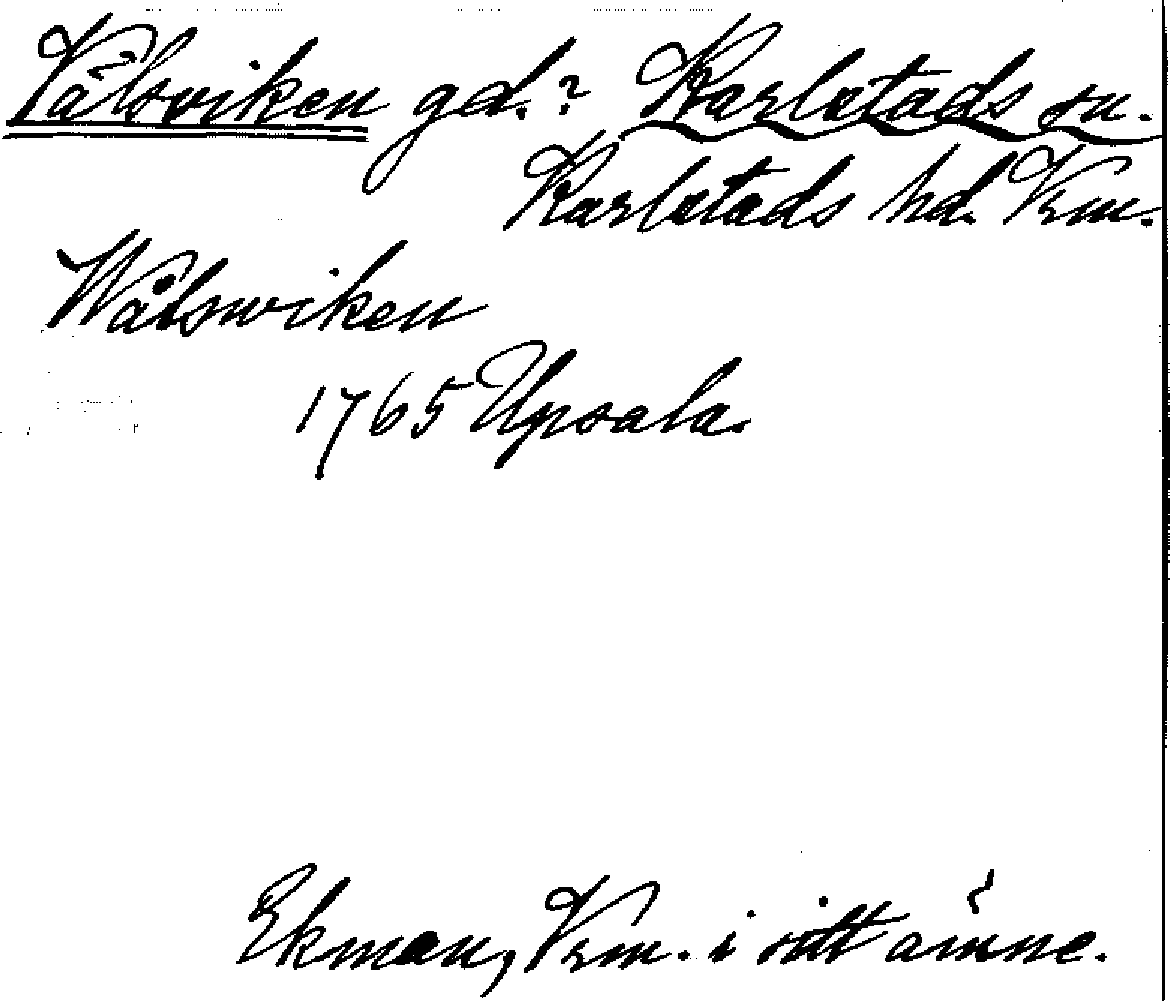 Vålsviken gd.? Karlstads sn.
Karlstads hd. Vrm.
Wålswiken
1765 Upsala.
Ekman, Vrm. i sitt ämne.